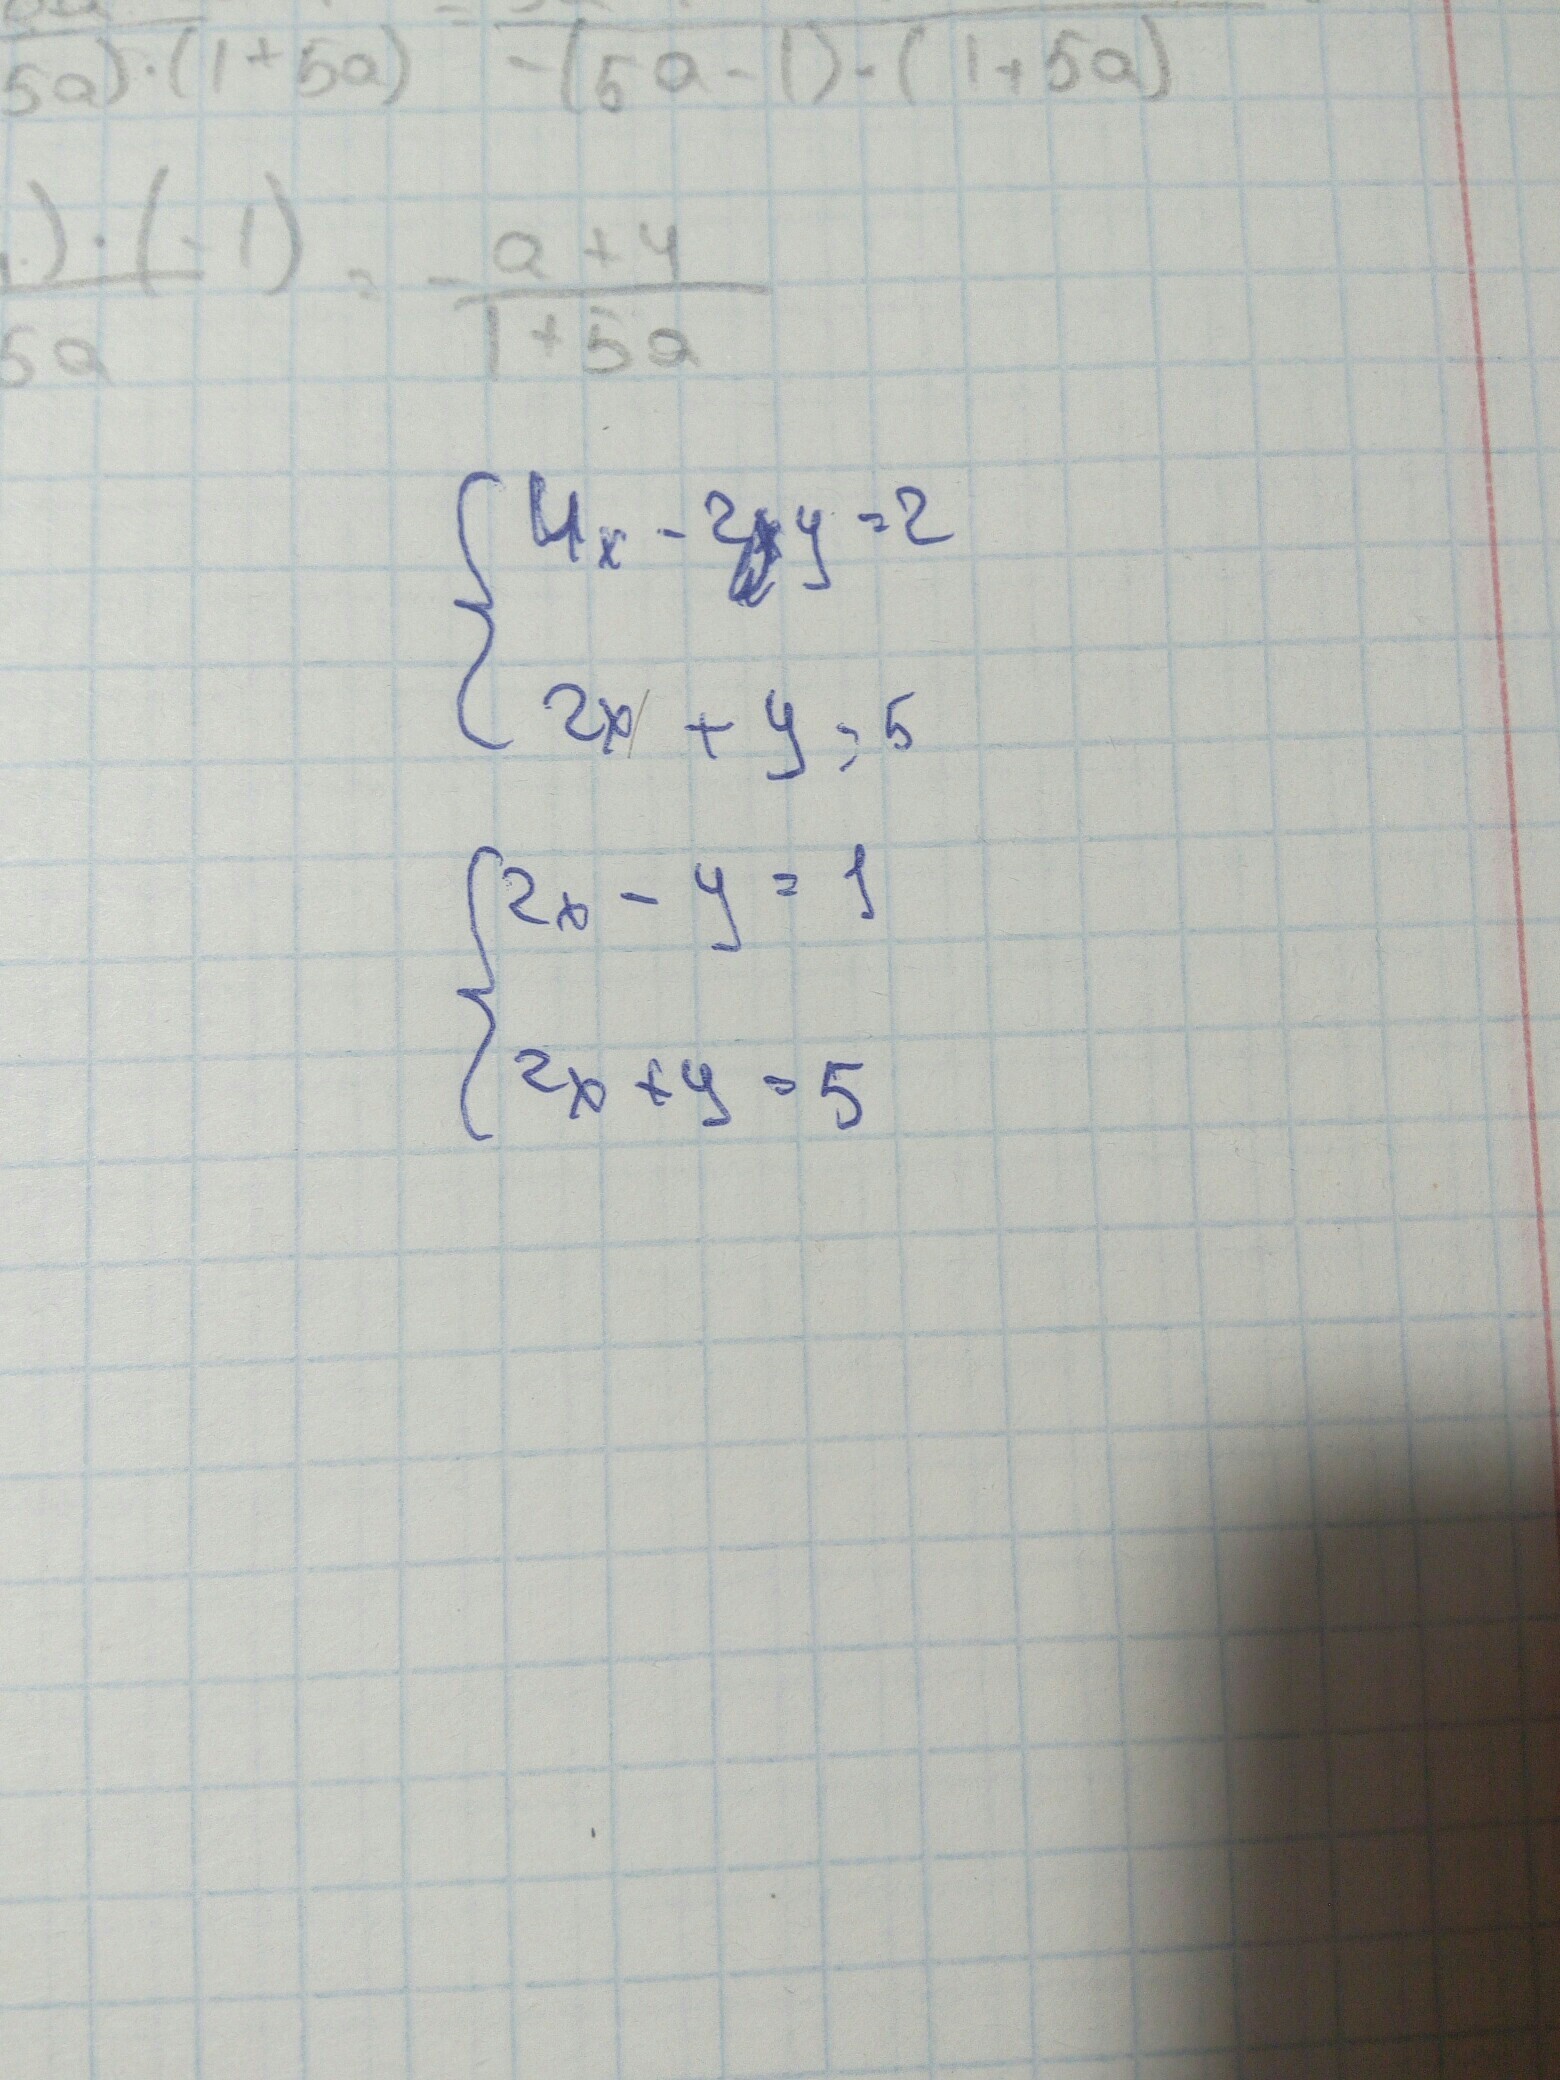 5a)·(1+5a) -(5a-1)·(1+5a)
)·(-1) = - a+y
5a 1+5a
4x - 2y = 2
2x + y = 5
2x - y = 1
2x + y = 5